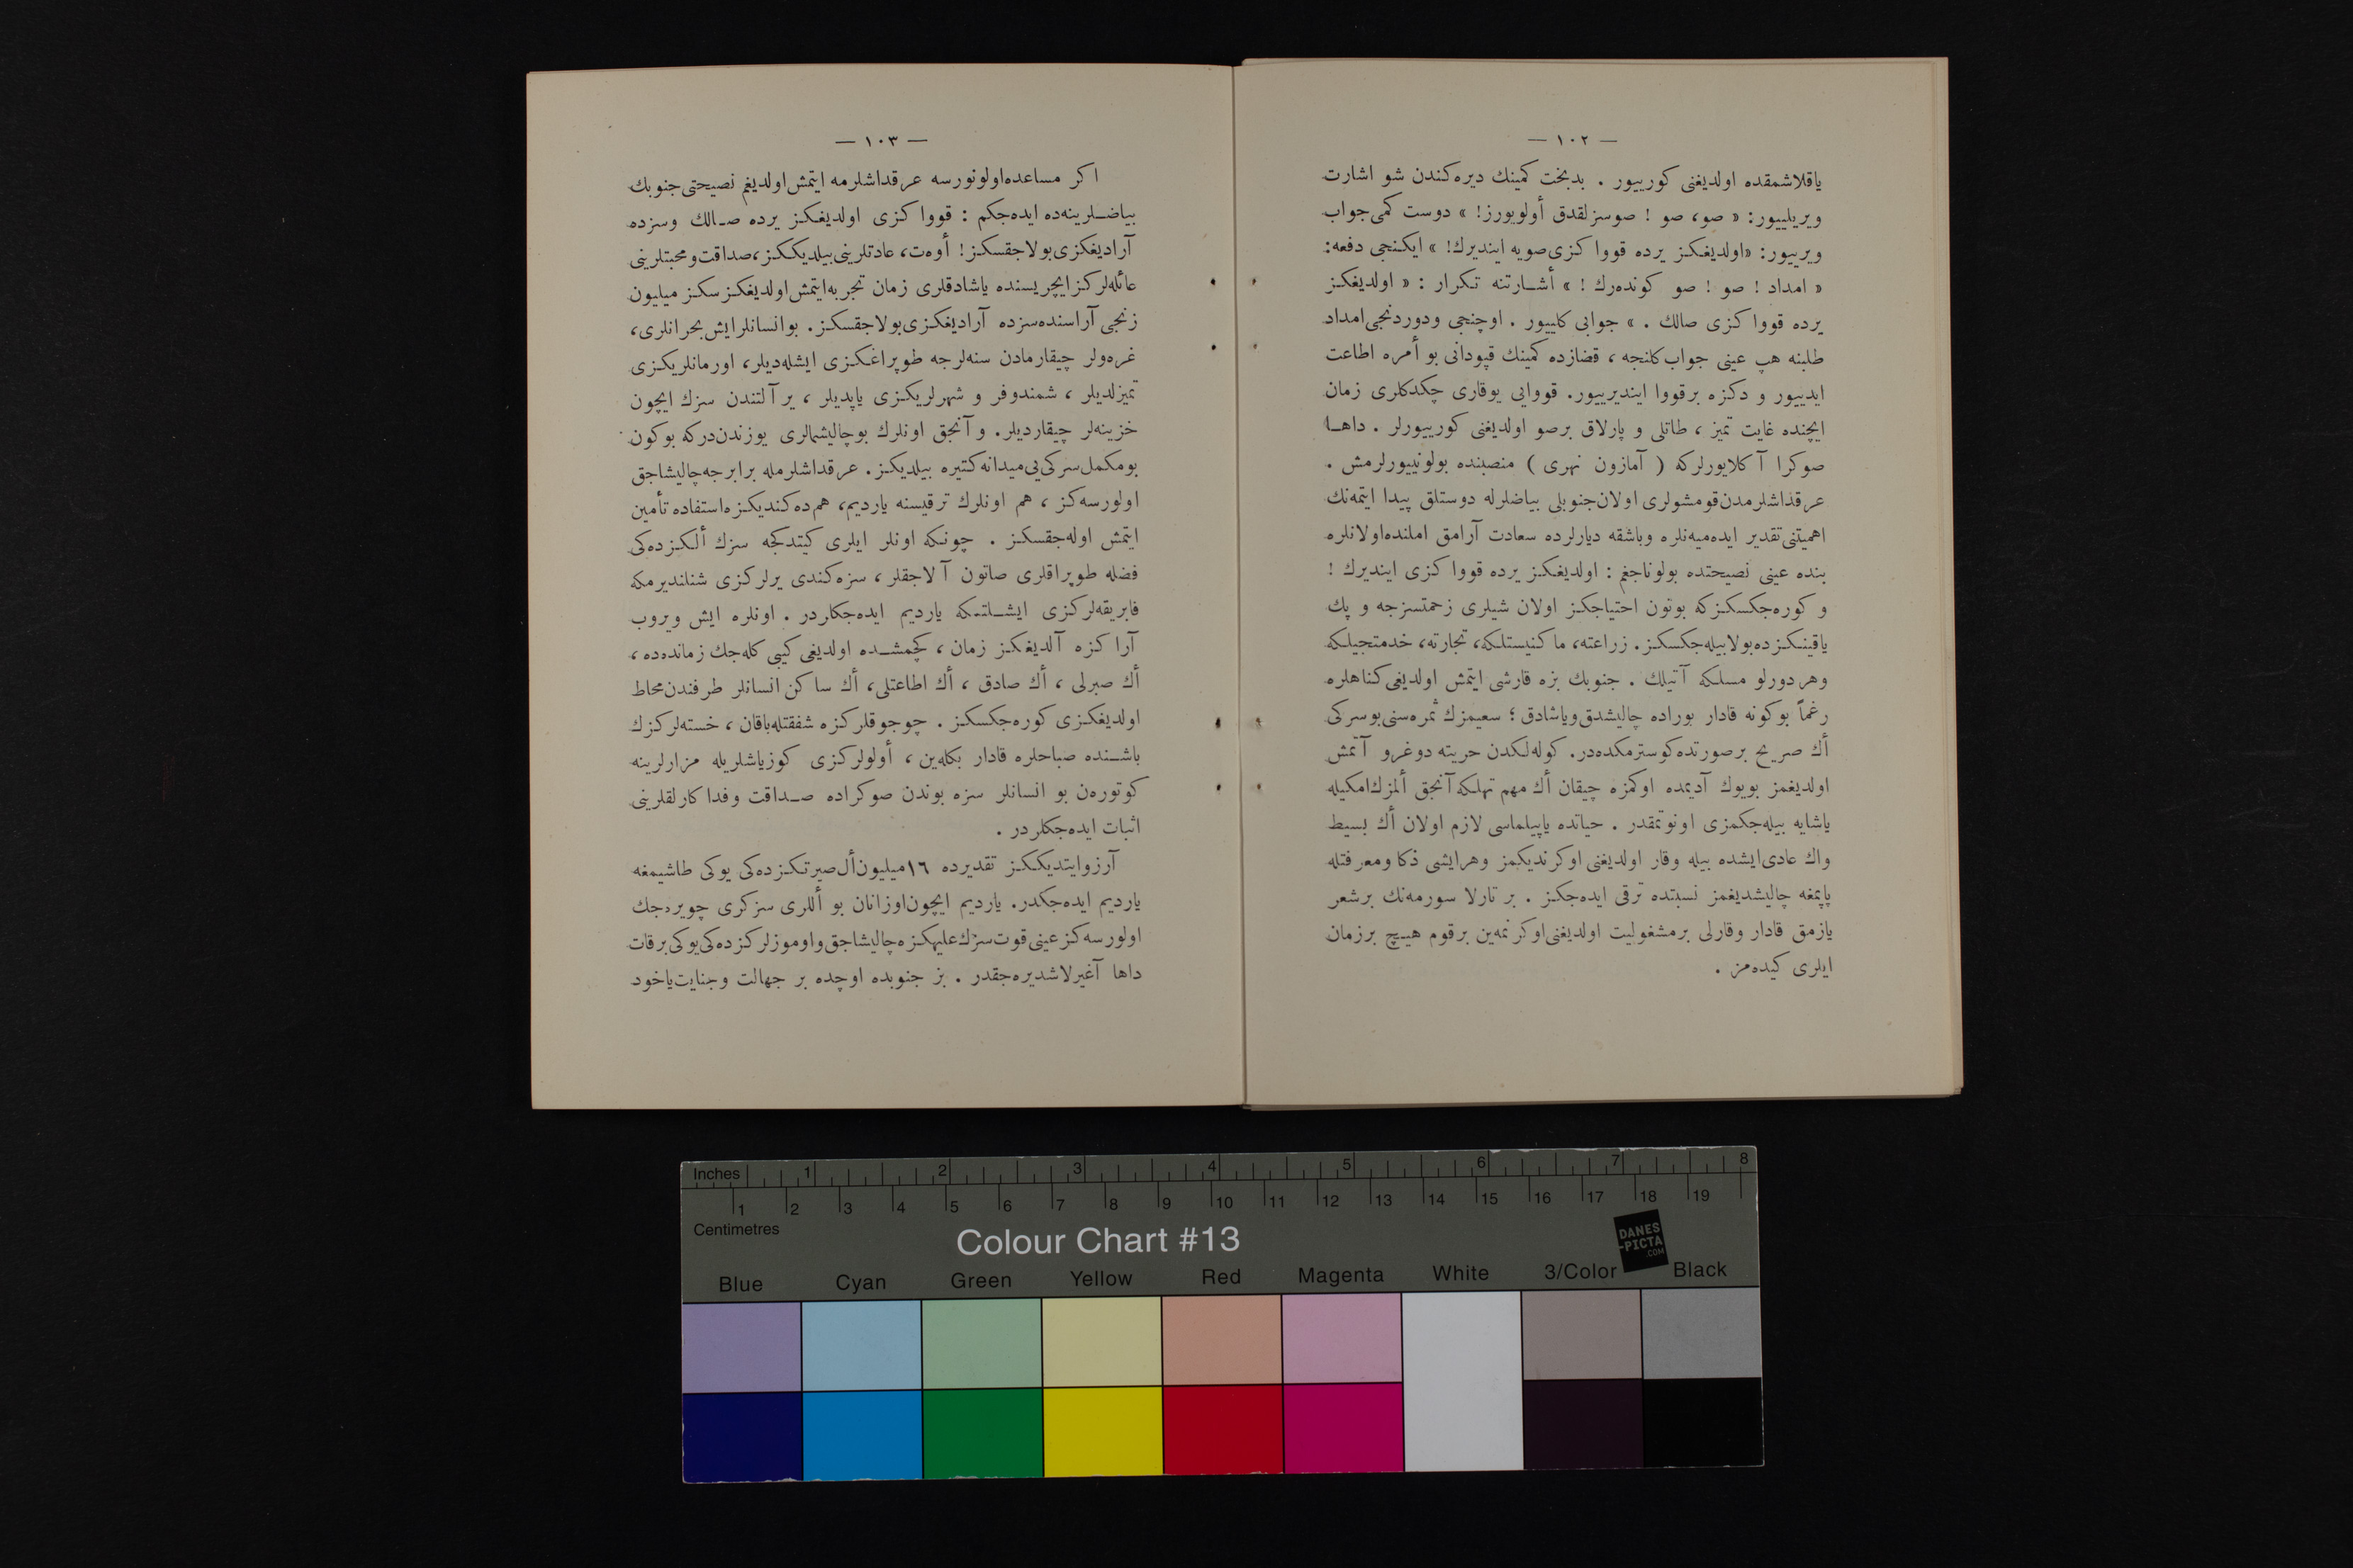 — ١٠٢ —
ياقلاشمقده اولديغنى كورييور . بدبخت كمينك ديره‌كندن شو اشارت
ويريلييور: « صو، صو ! صوسزلقدق أولويورز! » دوست كمى جواب
ويرييور: «اولديغكز يرده قووا كزى صويه اينديرك! » ايكنجى دفعه:
« امداد ! صو ! صو كونده‌رك ! » أشارتنه تكرار : « اولديغكز
يرده قووا كزى صالك . » جوابى كلييور . اوچنجى ودوردنجى امداد
طلبنه هپ عينى جواب كلنجه ، قضازده كمينك قپودانى بو أمره اطاعت
ايدييور و دكزه برقووا اينديرييور. قووايى يوقارى چكدكلرى زمان
ايچنده غايت تميز ، طاتلى و پارلاق برصو اولديغنى كورييورلر . داها
صوكرا آ كلايورلركه ( آمازون نهرى ) منصبنده بولونييورلرمش .
عرقداشلرمدن قومشولرى اولان جنوبلى بياضلرله دوستلق پيدا ايتمه‌نك
اهميتنى تقدير ايده‌ميه‌نلره وباشقه ديارلرده سعادت آرامق املنده اولانلره
بنده عينى نصيحتده بولوناجغم : اولديغكز يرده قووا كزى اينديرك !
و كوره‌جكسكزكه بوتون احتياجكز اولان شيلرى زحمتسزجه و پك
ياقينكزده بولابيله‌جكسكز. زراعته، ماكنيستلكه، تجارته، خدمتجيلكه
وهر دورلو مسلكه آتيلك . جنوبك بزه قارشى ايتمش اولديغى كناهلره
رغماً بوكونه قادار بوراده چاليشدق وياشادق ؛ سعيمزك ثمره‌سنى بوسركى
أك صريح برصورتده كوسترمكده‌در. كوله‌لكدن حريته دوغرو آتمش
اولديغمز بويوك آديمده اوكمزه چيقان أك مهم تهلكه آنجق ألمزك امكيله
ياشايه بيله‌جكمزى اونوتمقدر . حياتده ياپيلماسى لازم اولان أك بسيط
واك عادى ايشده بيله وقار اولديغنى اوكرنديكمز وهرايشى ذكا ومعرفتله
ياپمغه چاليشديغمز نسبتده ترقى ايده‌جكز . بر تارلا سورمه‌نك برشعر
يازمق قادار وقارلى برمشغوليت اولديغنى اوكرنمه‌ين برقوم هيچ برزمان
ايلرى كيده‌مز .
— ١٠٣ —
ا كر مساعده اولونورسه عرقداشلرمه ايتمش اولديغم نصيحتى جنوبك
بياضلرينه‌ده ايده‌جكم : قووا كزى اولديغكز يرده صالك وسزده
آراديغكزى بولاجقسكز! أوه‌ت، عادتلرينى بيلديككز، صداقت ومحبتلرينى
عائله‌لركز ايچريسنده ياشادقلرى زمان تجربه ايتمش اولديغكز سكز ميليون
زنجى آراسنده سزده آراديغكزى بولاجقسكز. بوانسانلر ايش بحرانلرى،
غره‌ولر چيقارمادن سنه‌لرجه طوپراغكزى ايشله‌ديلر، اورمانلريكزى
تميزلديلر ، شمندوفر و شهرلريكزى ياپديلر ، ير آلتندن سزك ايچون
خزينه‌لر چيقارديلر. و آنجق اونلرك بو چاليشمالرى يوزندن‌دركه بوكون
بومكمل سركى‌يى ميدانه كتيره بيلديكز. عرقداشلرمله برابرجه چاليشاجق
اولورسه‌كز ، هم اونلرك ترقيسنه يارديم، هم‌ده كنديكزه استفاده تأمين
ايتمش اوله‌جقسكز . چونكه اونلر ايلرى كيتدكجه سزك ألكزده‌كى
فضله طوپراقلرى صاتون آ لاجقلر ، سزه كندى يرلركزى شنلنديرمكه
فابريقه‌لركزى ايشلتمكه يارديم ايده‌جكلردر . اونلره ايش ويروب
آرا كزه آلديغكز زمان ، كچمشده اولديغى كيبى كله‌جك زمانده‌ده ،
أك صبرلى ، أك صادق ، أك اطاعتلى، أك ساكن انسانلر طرفندن محاط
اولديغكزى كوره‌جكسكز . چوجوقلركزه شفقتله باقان ، خسته‌لركزك
باشنده صباحلره قادار بكله‌ين ، أولولركزى كوزياشلريله مزارلرينه
كوتوره‌ن بو انسانلر سزه بوندن صوكراده صداقت وفدا كارلقلرينى
اثبات ايده‌جكلردر .
آرزوايتديككز تقديرده ١٦ ميليون أل صيرتكزده‌كى يوكى طاشيمغه
يارديم ايده‌جكدر. يارديم ايچون اوزانان بو أللرى سزكرى چويره‌جك
اولورسه‌كز عينى قوت سزك عليهكزه چاليشاجق واوموزلركزده‌كى يوكى برقات
داها آغيرلاشديره‌جقدر . بز جنوبده اوچده بر جهالت وجنايت ياخود
Inches 1 2 3 4 5 6 7 8
1 2 3 4 5 6 7 8 9 10 11 12 13 14 15 16 17 18 19
Centimetres
Colour Chart #13
DANES
-PICTA
.COM
Blue Cyan Green Yellow Red Magenta White 3/Color Black